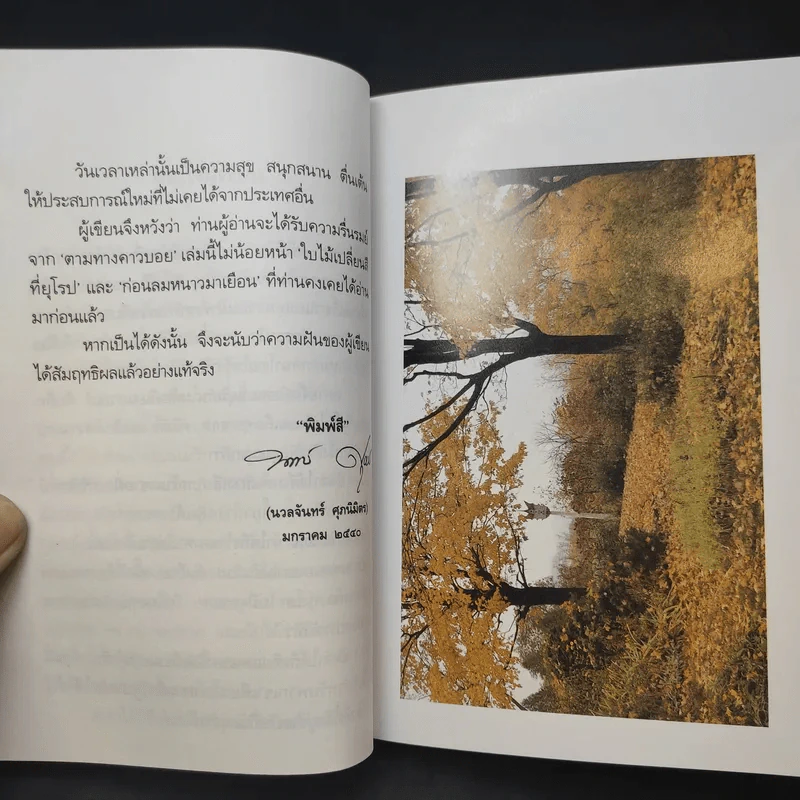 วันเวลาเหล่านั้นเป็นความสุข สนุกสนาน ตื่นเต้น
ให้ประสบการณ์ใหม่ที่ไม่เคยได้จากประเทศอื่น
ผู้เขียนจึงหวังว่า ท่านผู้อ่านจะได้รับความรื่นรมย์
จาก ‘ตามทางคาวบอย’ เล่มนี้ไม่น้อยหน้า ‘ใบไม้เปลี่ยนสี
ที่ยุโรป’ และ ‘ก่อนลมหนาวมาเยือน’ ที่ท่านคงเคยได้อ่าน
มาก่อนแล้ว
หากเป็นได้ดังนั้น จึงจะนับว่าความฝันของผู้เขียน
ได้สัมฤทธิผลแล้วอย่างแท้จริง
“พิมพ์สี”
(นวลจันทร์ ศุภนิมิตร)
มกราคม ๒๕๔๐